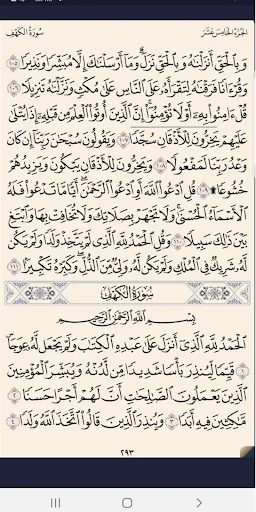 سُورَةُ الكَهْفِ الجُزْءُ الخَامِسَ عَشَرَ
وَبِٱلْحَقِّ أَنزَلْنَٰهُ وَبِٱلْحَقِّ نَزَلَ ۗ وَمَآ أَرْسَلْنَٰكَ إِلَّا مُبَشِّرًا وَنَذِيرًا ١٠٥
وَقُرْءَانًا فَرَقْنَٰهُ لِتَقْرَأَهُۥ عَلَى ٱلنَّاسِ عَلَىٰ مُكْثٍ وَنَزَّلْنَٰهُ تَنزِيلًا ١٠٦
قُلْ ءَامِنُوا۟ بِهِۦٓ أَوْ لَا تُؤْمِنُوٓا۟ ۚ إِنَّ ٱلَّذِينَ أُوتُوا۟ ٱلْعِلْمَ مِن قَبْلِهِۦٓ إِذَا يُتْلَىٰ
عَلَيْهِمْ يَخِرُّونَ لِلْأَذْقَانِ سُجَّدًا ١٠٧ وَيَقُولُونَ سُبْحَٰنَ رَبِّنَآ إِن كَانَ
وَعْدُ رَبِّنَا لَمَفْعُولًا ١٠٨ وَيَخِرُّونَ لِلْأَذْقَانِ يَبْكُونَ وَيَزِيدُهُمْ
خُشُوعًا ۩ ١٠٩ قُلِ ٱدْعُوا۟ ٱللَّهَ أَوِ ٱدْعُوا۟ ٱلرَّحْمَٰنَ ۖ أَيًّا مَّا تَدْعُوا۟ فَلَهُ
ٱلْأَسْمَآءُ ٱلْحُسْنَىٰ ۚ وَلَا تَجْهَرْ بِصَلَاتِكَ وَلَا تُخَافِتْ بِهَا وَٱبْتَغِ
بَيْنَ ذَٰلِكَ سَبِيلًا ١١٠ وَقُلِ ٱلْحَمْدُ لِلَّهِ ٱلَّذِى لَمْ يَتَّخِذْ وَلَدًا وَلَمْ يَكُن
لَّهُۥ شَرِيكٌ فِى ٱلْمُلْكِ وَلَمْ يَكُن لَّهُۥ وَلِىٌّ مِّنَ ٱلذُّلِّ ۖ وَكَبِّرْهُ تَكْبِيرًۢا ١١١
سُورَةُ الكَهْفِ
بِسْمِ ٱللَّهِ ٱلرَّحْمَٰنِ ٱلرَّحِيمِ
ٱلْحَمْدُ لِلَّهِ ٱلَّذِىٓ أَنزَلَ عَلَىٰ عَبْدِهِ ٱلْكِتَٰبَ وَلَمْ يَجْعَل لَّهُۥ عِوَجَا
١ قَيِّمًا لِّيُنذِرَ بَأْسًا شَدِيدًا مِّن لَّدُنْهُ وَيُبَشِّرَ ٱلْمُؤْمِنِينَ
ٱلَّذِينَ يَعْمَلُونَ ٱلصَّٰلِحَٰتِ أَنَّ لَهُمْ أَجْرًا حَسَنًا ٢
مَّٰكِثِينَ فِيهِ أَبَدًا ٣ وَيُنذِرَ ٱلَّذِينَ قَالُوا۟ ٱتَّخَذَ ٱللَّهُ وَلَدًا ٤
٢٩٣